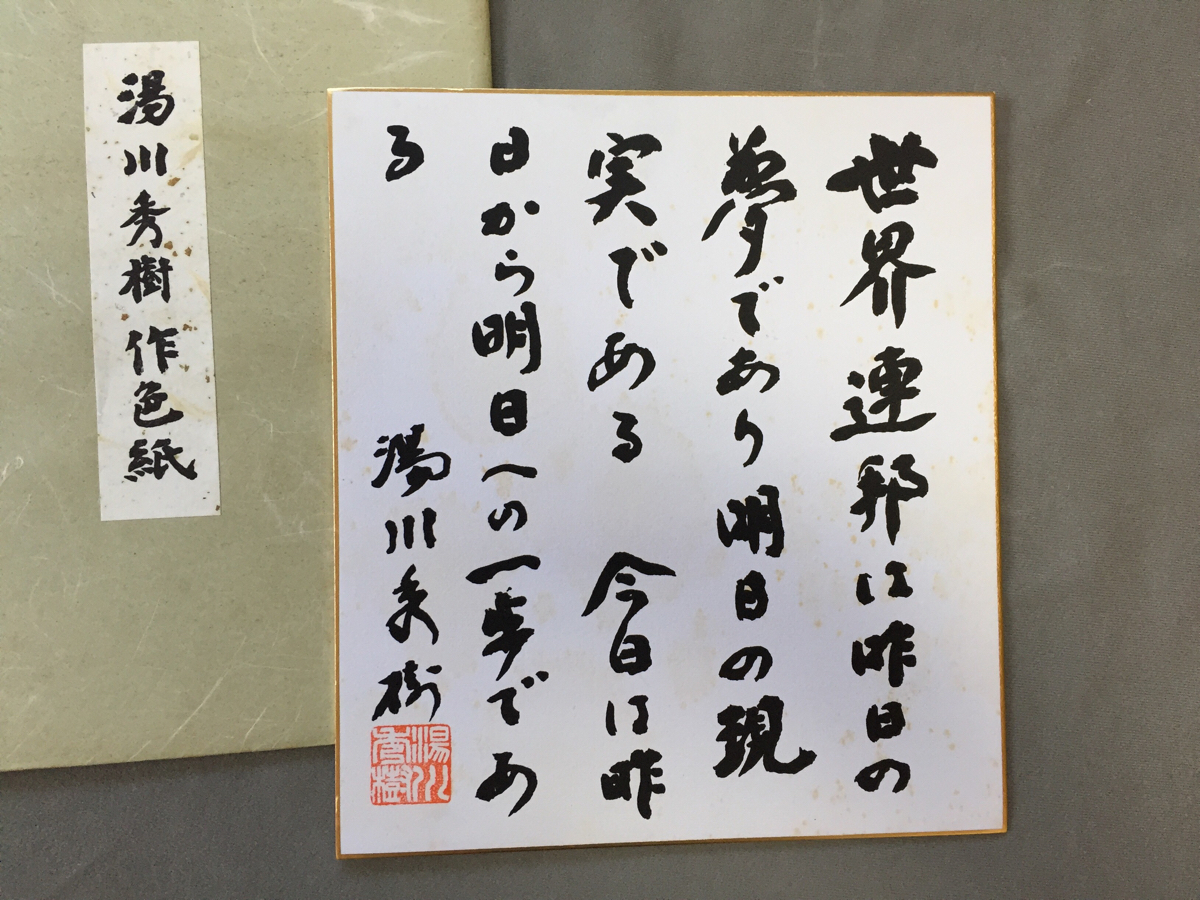 湯川秀樹作色紙
世界連邦は昨日の
夢であり明日の現
実である 今日は昨
日から明日への一歩であ
る
湯川秀樹
湯川
秀樹